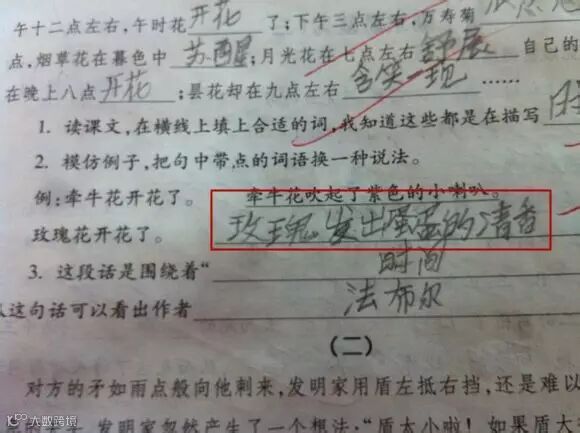 午十二点左右,午时花 开花 了;下午三点左右,万寿菊
点,烟草花在暮色中 苏醒;月光花在七点左右 舒展 自己的
在晚上八点 开花 ;昙花却在九点左右 含笑一现 ……
1. 读课文,在横线上填上合适的词,我知道这些都是在描写
2. 模仿例子,把句中带点的词语换一种说法。
例:牵牛花开花了。 牵牛花吹起了紫色的小喇叭。
玫瑰花开花了。 玫瑰发出蛋蛋的清香
3. 这段话是围绕着“ 时间
这句话可以看出作者 法布尔
(二)
对方的矛如雨点般向他刺来,发明家用盾左抵右挡,还是难以
发明家忽然产生了一个想法:“盾太小啦!如果盾大
大数跨境